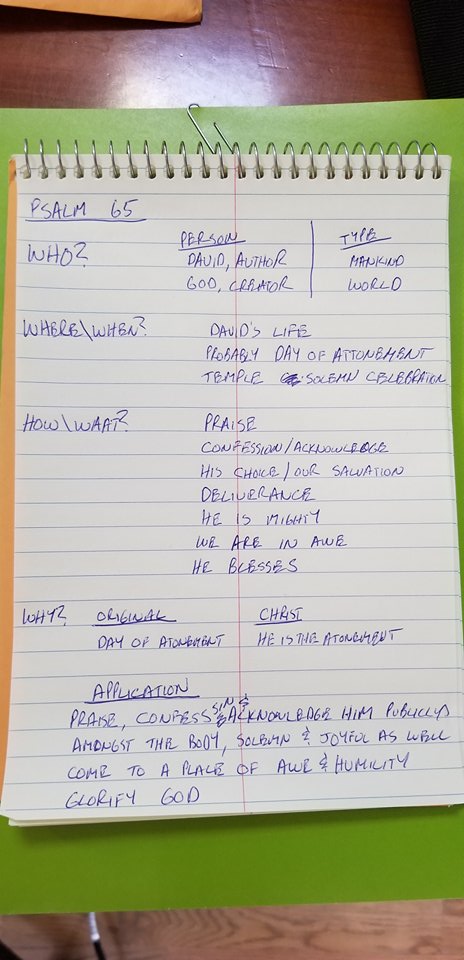 PSALM 65
PERSON TYPE
WHO? DAVID, AUTHOR MANKIND
GOD, CREATOR WORLD
WHERE\WHEN? DAVID'S LIFE
PROBABLY DAY OF ATTONEMENT
TEMPLE SOLEMN CELEBRATION
HOW\WAAT? PRAISE
CONFESSION/ACKNOWLEDGE
HIS CHOICE/OUR SALVATION
DELIVERANCE
HE IS MIGHTY
WE ARE IN AWE
HE BLESSES
WHY? ORIGINAL CHRIST
DAY OF ATONEMENT HE IS THE ATONEMENT
APPLICATION
PRAISE, CONFESS SIN & ACKNOWLEDGE HIM PUBLICLY
AMONGST THE BODY, SOLEMN & JOYFUL AS WELL
COME TO A PLACE OF AWE & HUMILITY
GLORIFY GOD